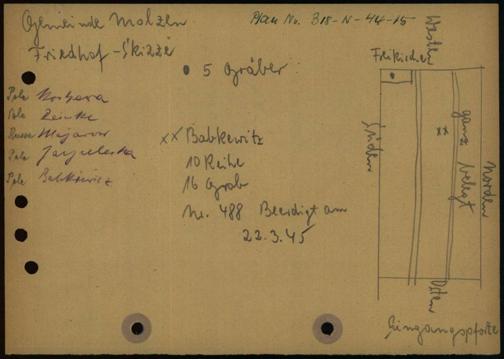 Gemeinde Molzen
Plan No. 318-N-44-15
Friedhof-Skizze
5 Gräber
Pole
Pole
Russe Majarow
Pole
Pole Babkewitz
xx Babkewitz
10 Reihe
16 Grab
Nr. 488 Beerdigt am
22.3.45
Westen
Freikirchen
Süden
xx
ganz belegt
Norden
Osten
Eingangspforte